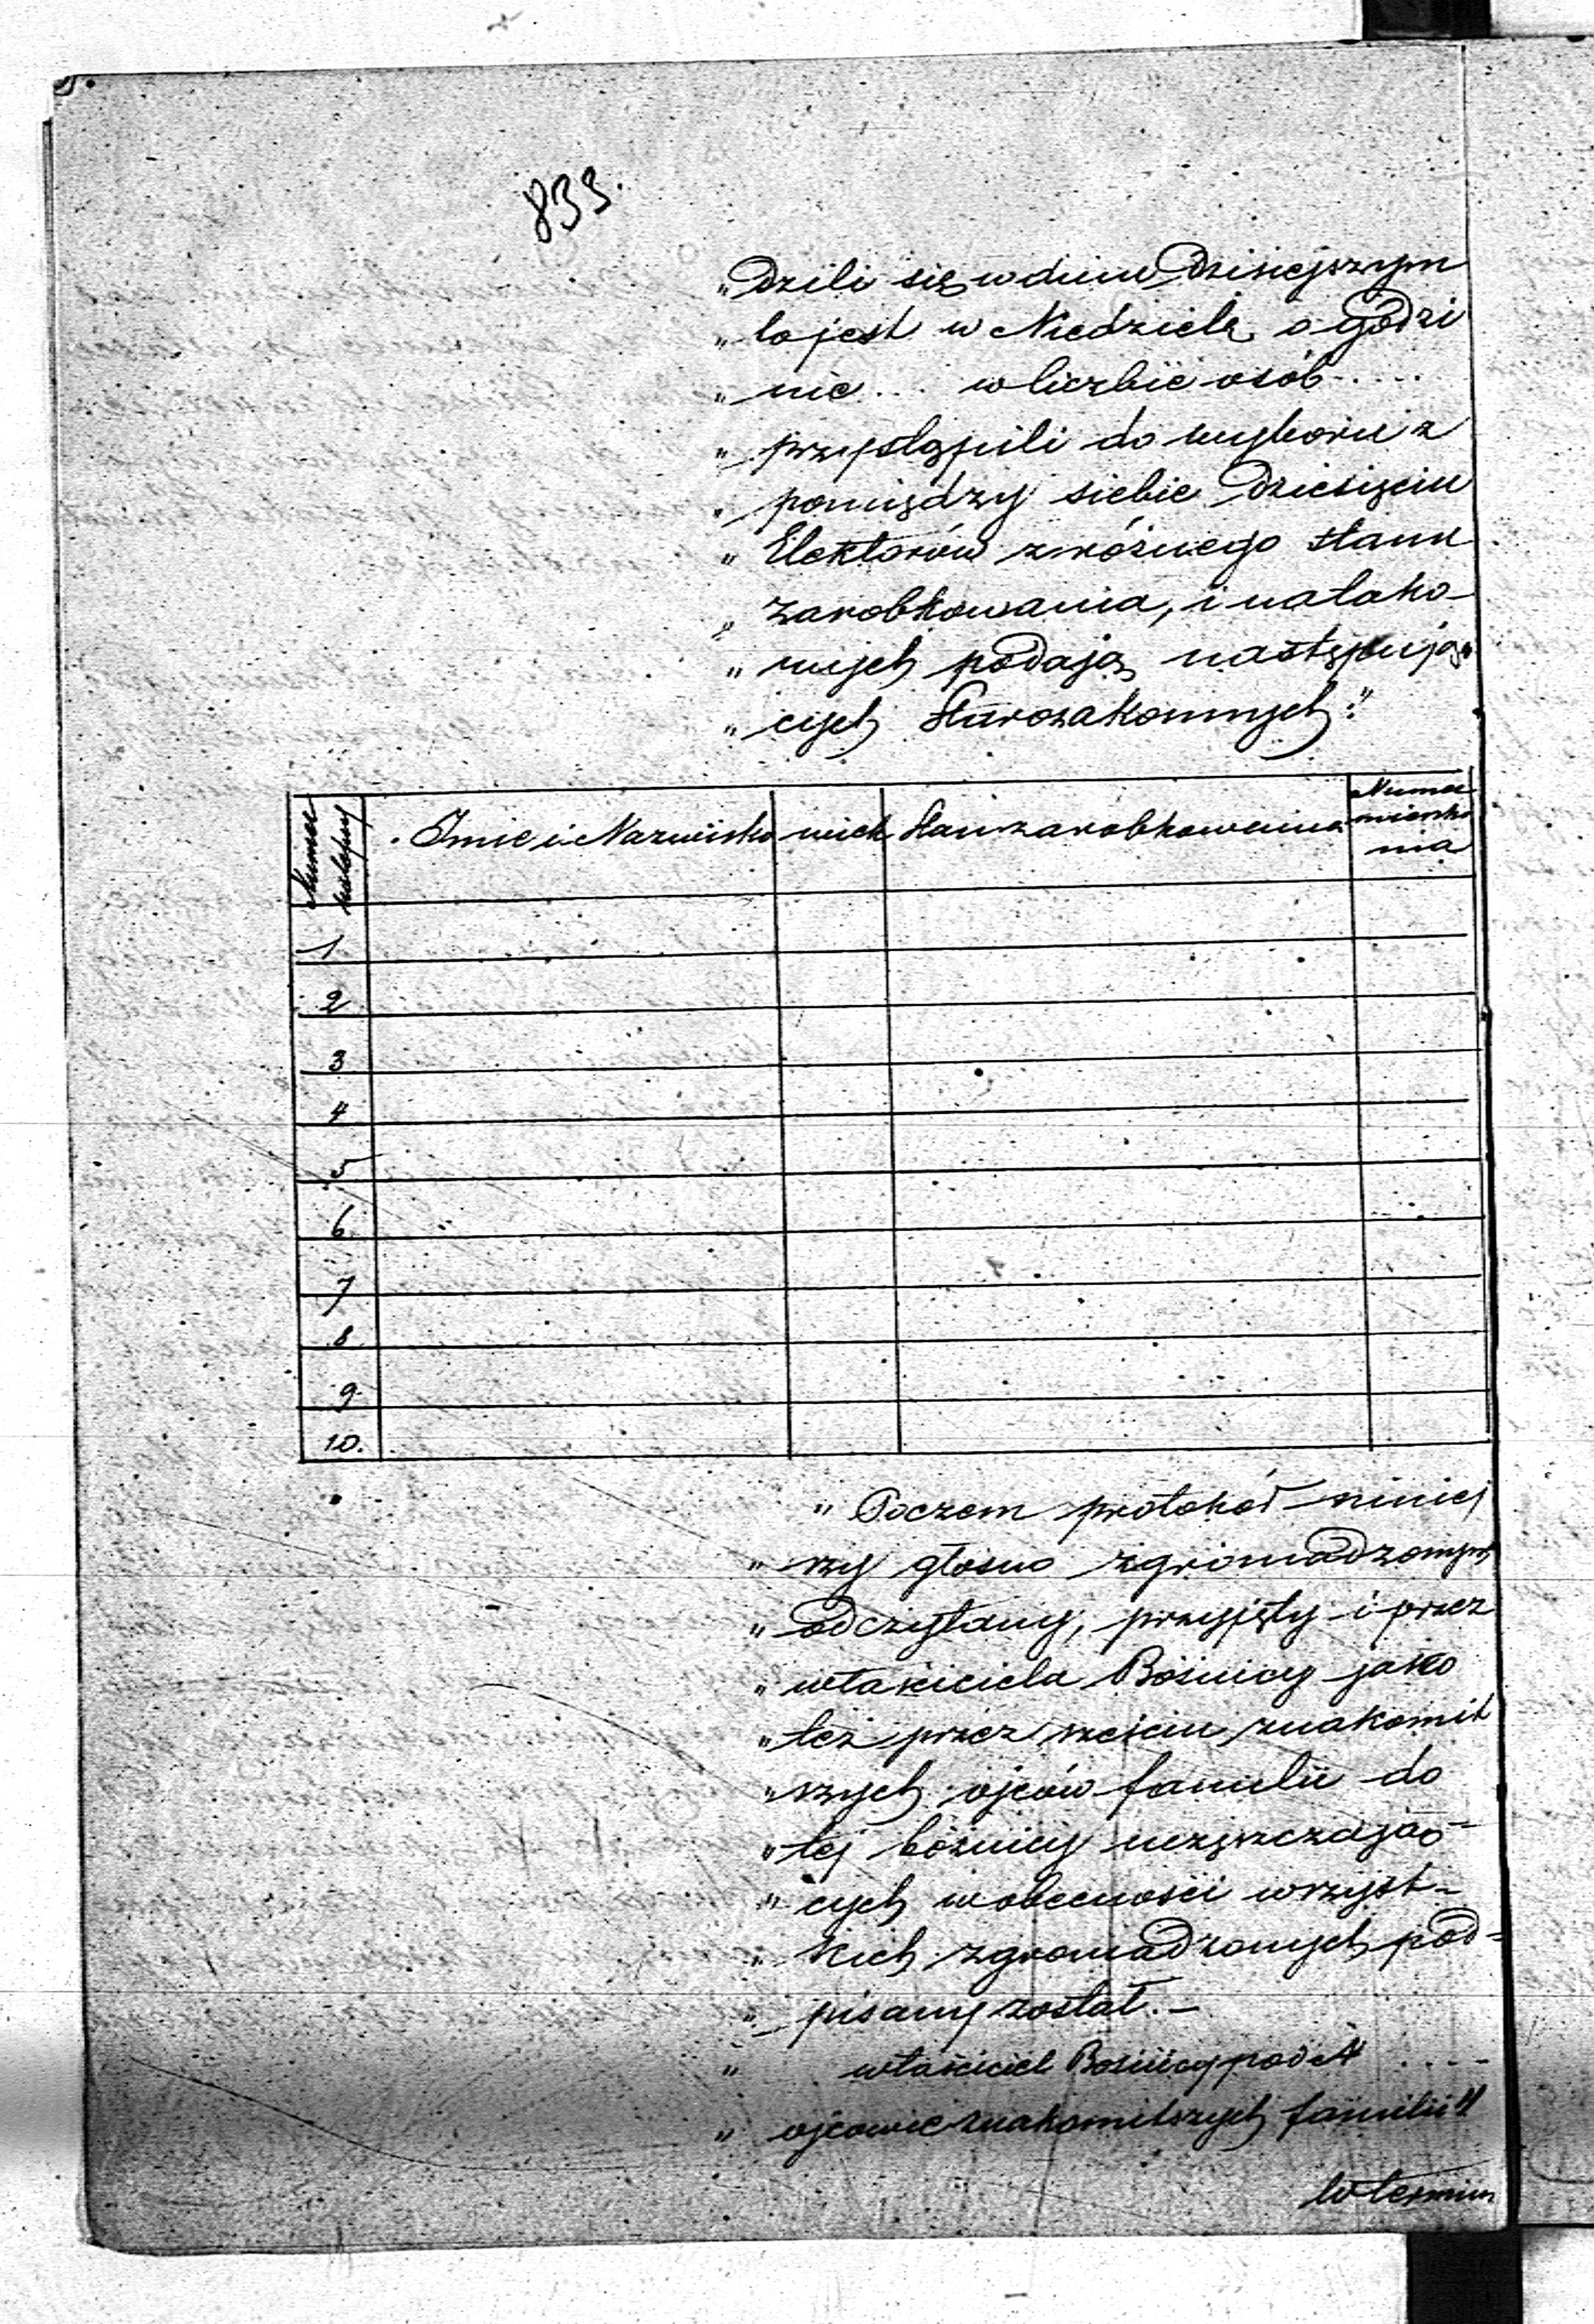 833.
„dzili się w dniu dzisiejszym
„to jest w Niedzielę o godzi
„nie ... w liczbie osób .....
„przystąpili do wyboru z
„pomiędzy siebie dziesięciu
„Elektorów z różnego stanu
„zarobkowania, i na tako-
„wych podają następują-
„cych Starozakonnych:"
Numer
Imie i Nazwisko wiek Stan zarobkowania Numer
mieszka
nia
1
2
3
4
5
6
7
8
9
10.
„Poczem protokół niniej
„szy głosno zgromadzonym
„odczytany, przyjęty i przez
„właściciela Bóżnicy jako
„też przez sześciu znakomit
„szych ojców familii do
„tej bóżnicy uczęszczają-
„cych w obecności wszyst-
„kich zgromadzonych pod-
„pisany został. –
„właściciel Bóżnicy pod N ....
„ojcowie znakomitszych familii"
W termin